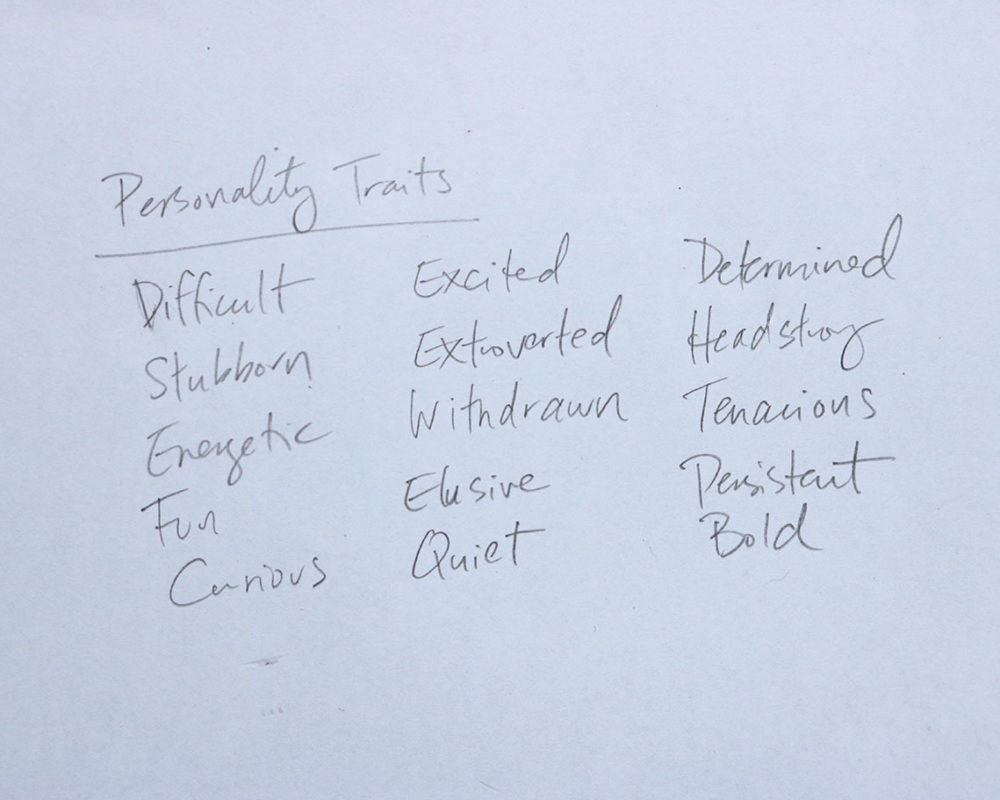 Personality Traits
Difficult Excited Determined
Stubborn Extroverted Headstrong
Energetic Withdrawn Tenacious
Fun Elusive Persistent
Curious Quiet Bold